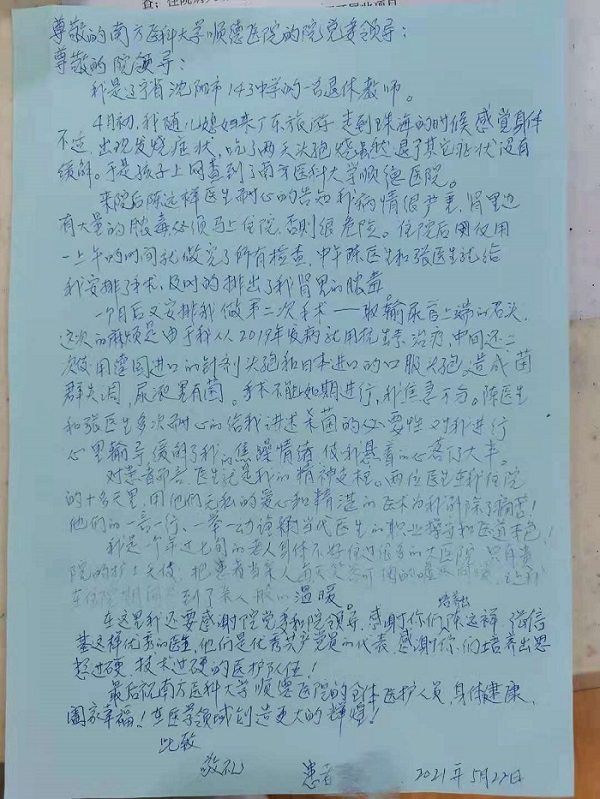 尊敬的南方医科大学顺德医院的院党委领导：
尊敬的院领导：
我是辽宁省沈阳市143中学的一名退休教师。
4月初，我随儿媳妇来广东旅游，走到珠海的时候感觉身体
不适，出现发烧症状，吃了两天头孢烧虽然退了其它症状没有
缓解。于是孩子上网查到了南方医科大学顺德医院。
来院后陈远祥医生耐心的告知我病情很严重，肾里边
有大量的脓毒必须马上住院，否则很危险。住院后用仅用
一上午的时间就做完了所有检查，中午陈医生和张医生就给
我安排手术，及时的排出了我肾里的脓毒
一个月后又安排我做第二次手术——取输尿管上端的石头，
这次的麻烦是由于我从2019年发病就用抗生素治疗，中间还二
次使用德国进口的针剂头孢和日本进口的口服头孢，造成菌
群失调，尿液里有菌。手术不能如期进行，我焦急万分。陈医生
和张医生多次耐心的给我讲述杀菌的必要性，对我进行
心里输导缓解了我的焦躁情绪，使我悬着的心落了大半。
对患者而言，医生就是我的精神支柱。两位医生在我住院
的十多天里，用他们无私的爱心和精湛的医术为我解除了痛苦！
他们的一言一行、一举一动诠释当代医生的职业操守和医道本色！
我是一个年过七旬的老人身体不好住过很多的大医院，只有贵
院的护士天使，把患者当亲人
到了亲人般的温暖。
在这里我还要感谢院党委和院领导，感谢你们培养出陈远祥、张信
基这样优秀的医生，他们是优秀共产党员的代表，感谢你们培养出思
想过硬、技术过硬的医护队伍！
最后祝南方医科大学顺德医院的全体医护人员，身体健康，
阖家幸福！在医学领域创造更大的辉煌！
此致
敬礼
患者 2021年5月27日